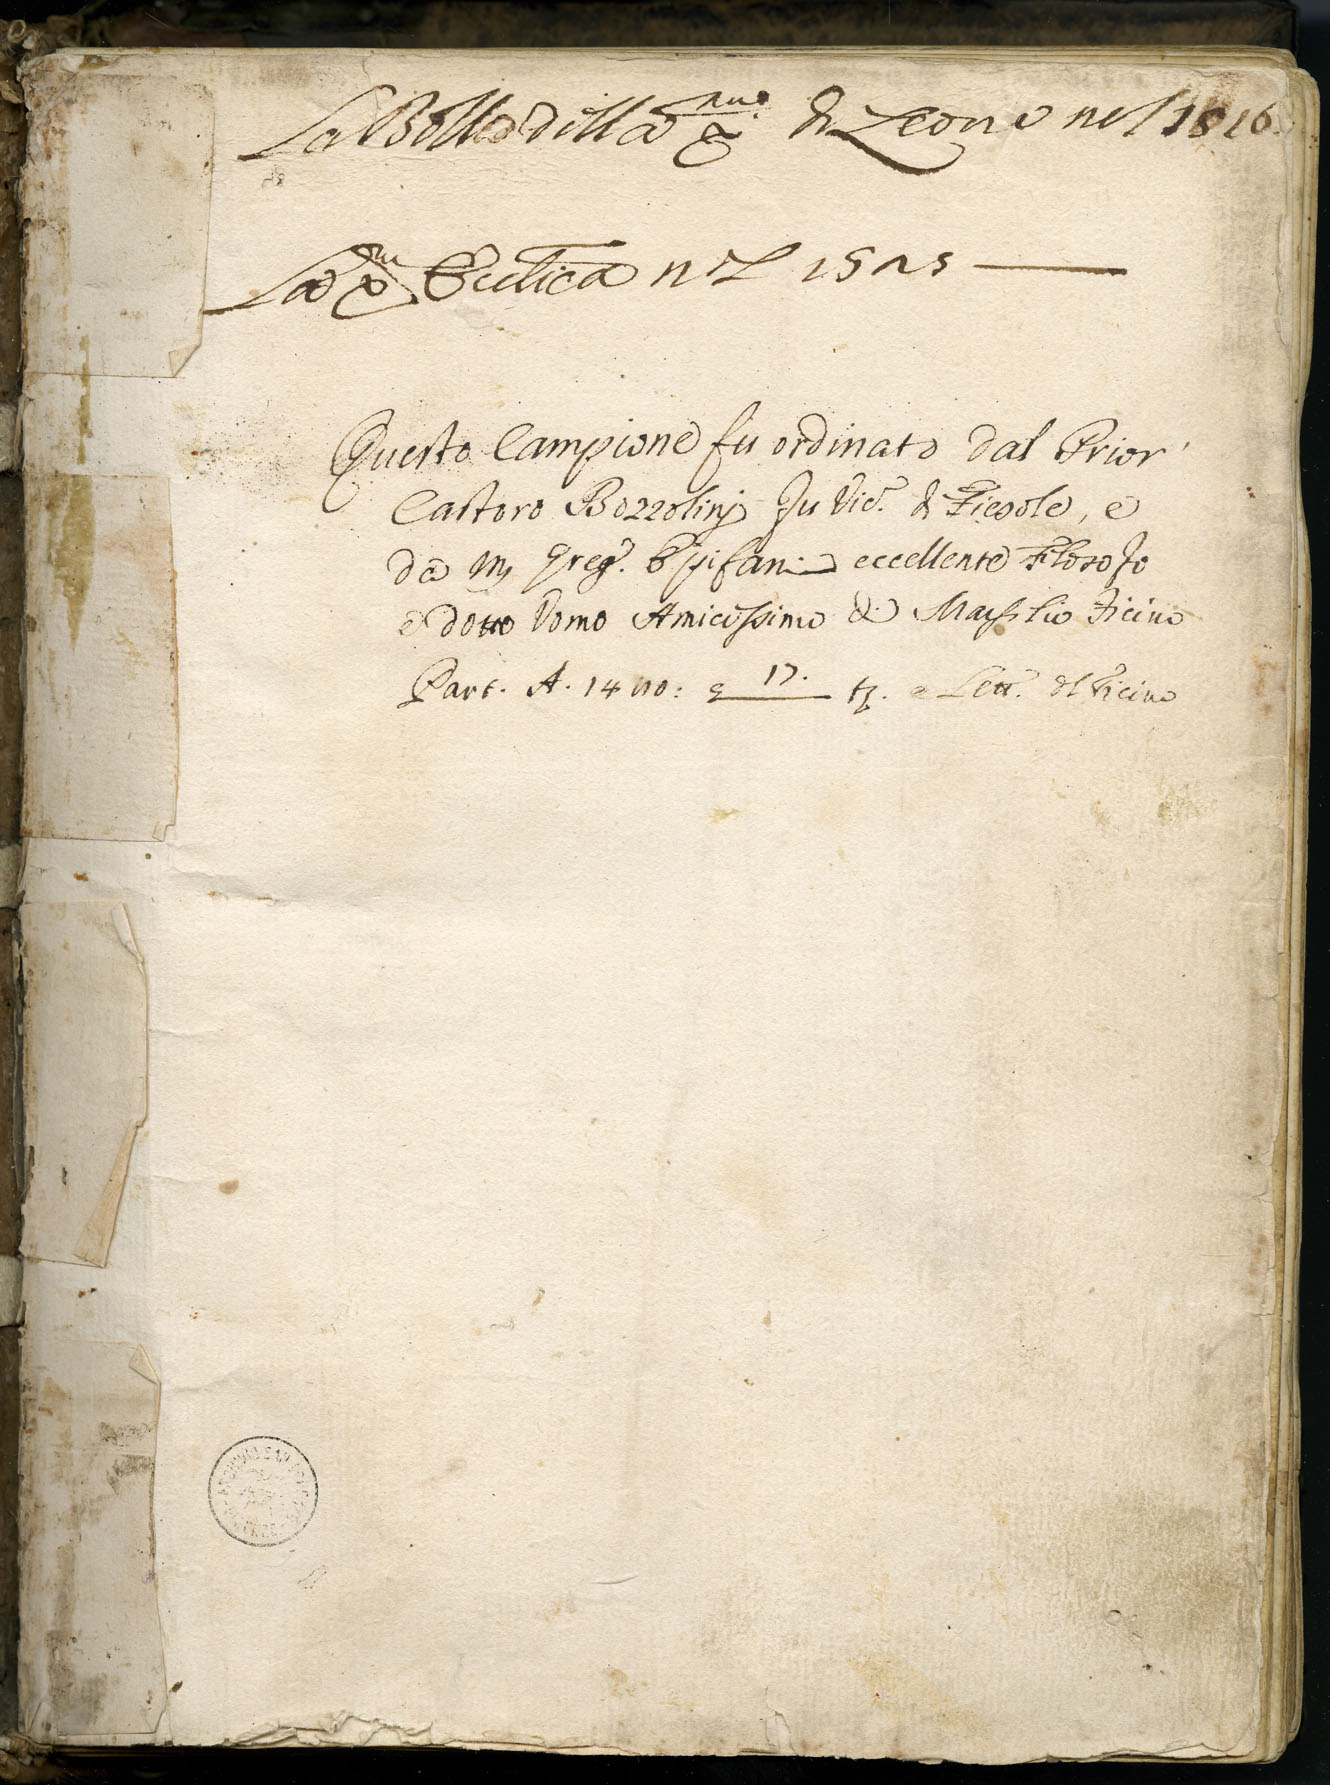 La Bolla della Xma di Leone nel 1516.
La Xma Ecclica nel 1525
Questo Campione fu ordinato dal Prior
Castoro Bozzolinj fu Vic.o di Fiesole, e
da Greg. Epifani eccellente Filosofo
e dotto Uomo Amicissimo di Marsilio Ficino
Part. A. 1490: 17. Lett. del Ficino